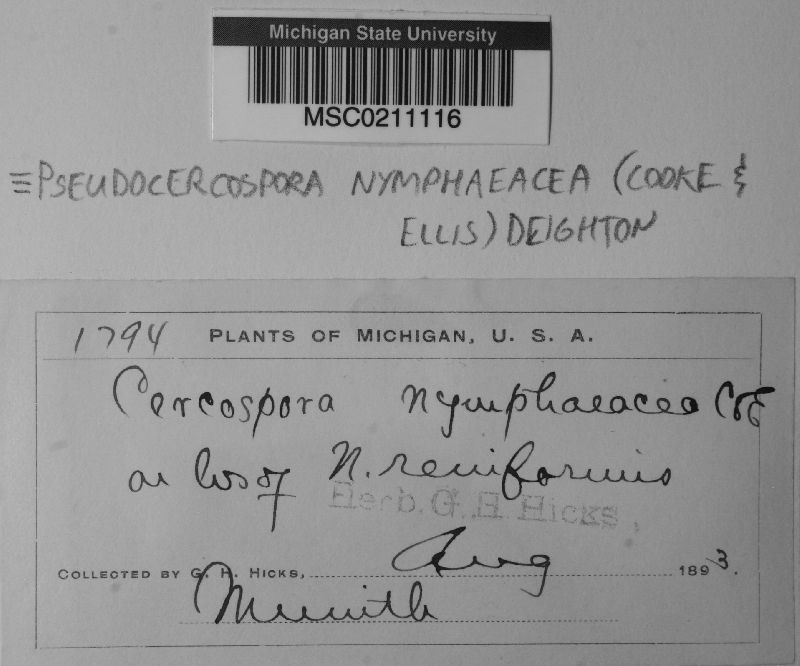 Michigan State University
MSC0211116
≡PSEUDOCERCOSPORA NYMPHAEACEA (COOKE &
ELLIS) DEIGHTON
1794 PLANTS OF MICHIGAN, U. S. A.
Cercospora nymphaeacea C&E
on lvs of N. reniformis
Herb. G. H. Hicks,
Aug
COLLECTED BY G. H. HICKS, 1893.
Munith